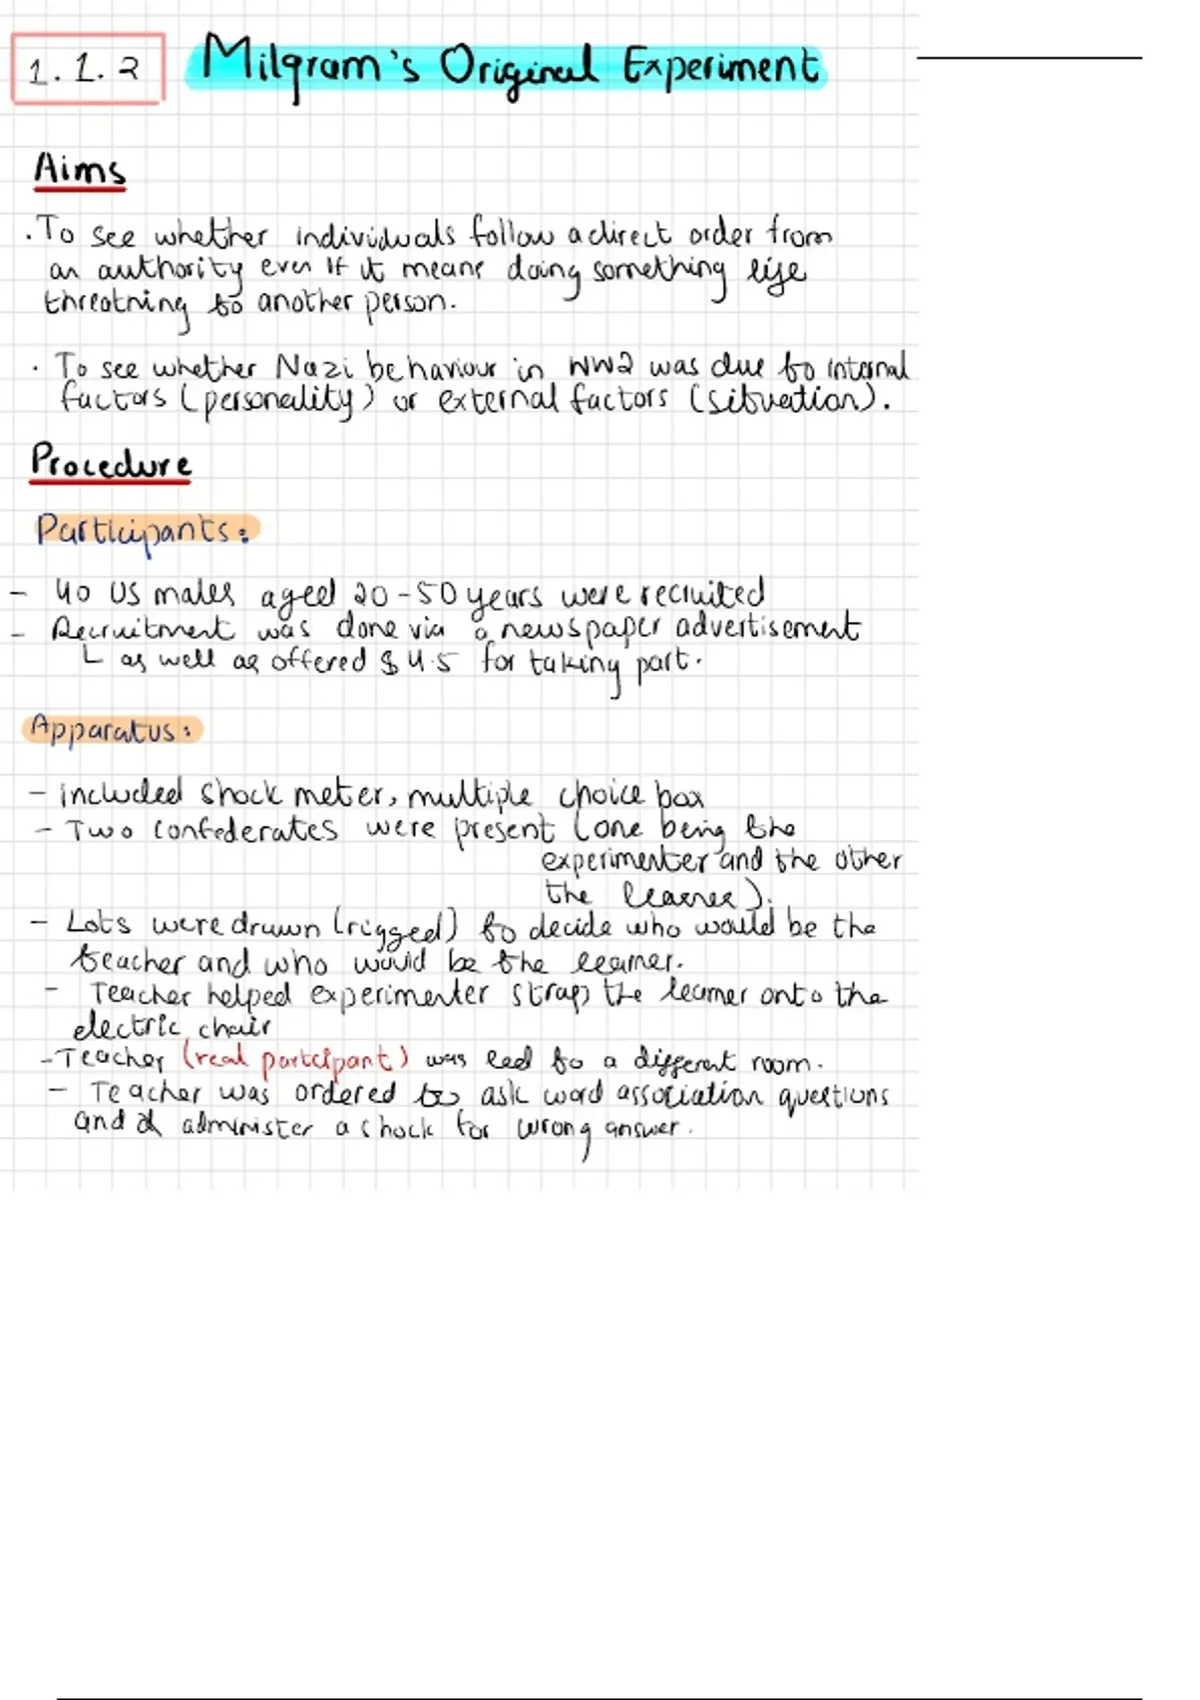 1.1.2 Milgram's Original Experiment
Aims
· To see whether individuals follow a direct order from
an authority even if it means doing something life
threatning to another person.
· To see whether Nazi behaviour in WW2 was due to internal
factors (personality) or external factors (situation).
Procedure
Participants:
- 40 US males aged 20-50 years were recruited
- Recruitment was done via a newspaper advertisement
L as well as offered $4.5 for taking part.
Apparatus:
- included shock meter, multiple choice box
- Two confederates were present (one being the
experimenter and the other
the learner).
- Lots were drawn (rigged) to decide who would be the
teacher and who would be the learner.
- Teacher helped experimenter strap the learner onto the
electric chair
- Teacher (real partcipant) was led to a different room.
- Teacher was ordered to ask word association questions
and administer a shock for wrong answer.